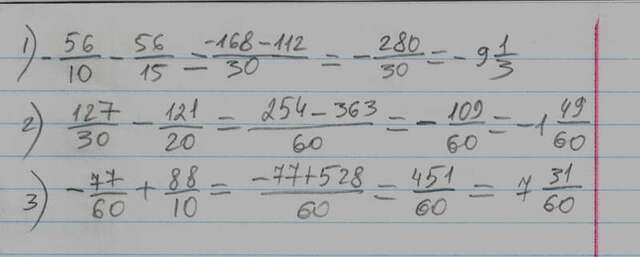 1) -56/10 - 56/15 = -168-112/30 = -280/30 = -9 1/3
2) 127/30 - 121/20 = 254-363/60 = -109/60 = -1 49/60
3) -77/60 + 88/10 = -77+528/60 = 451/60 = 7 31/60